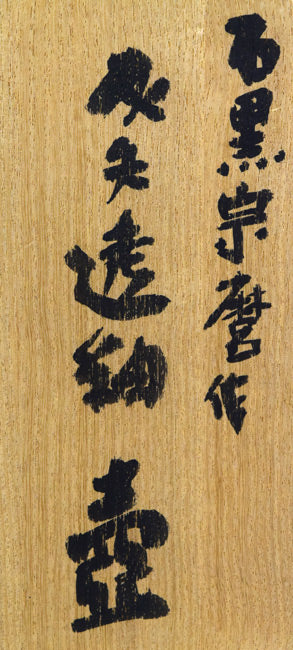 石黒宗麿作
灰失透釉 壺